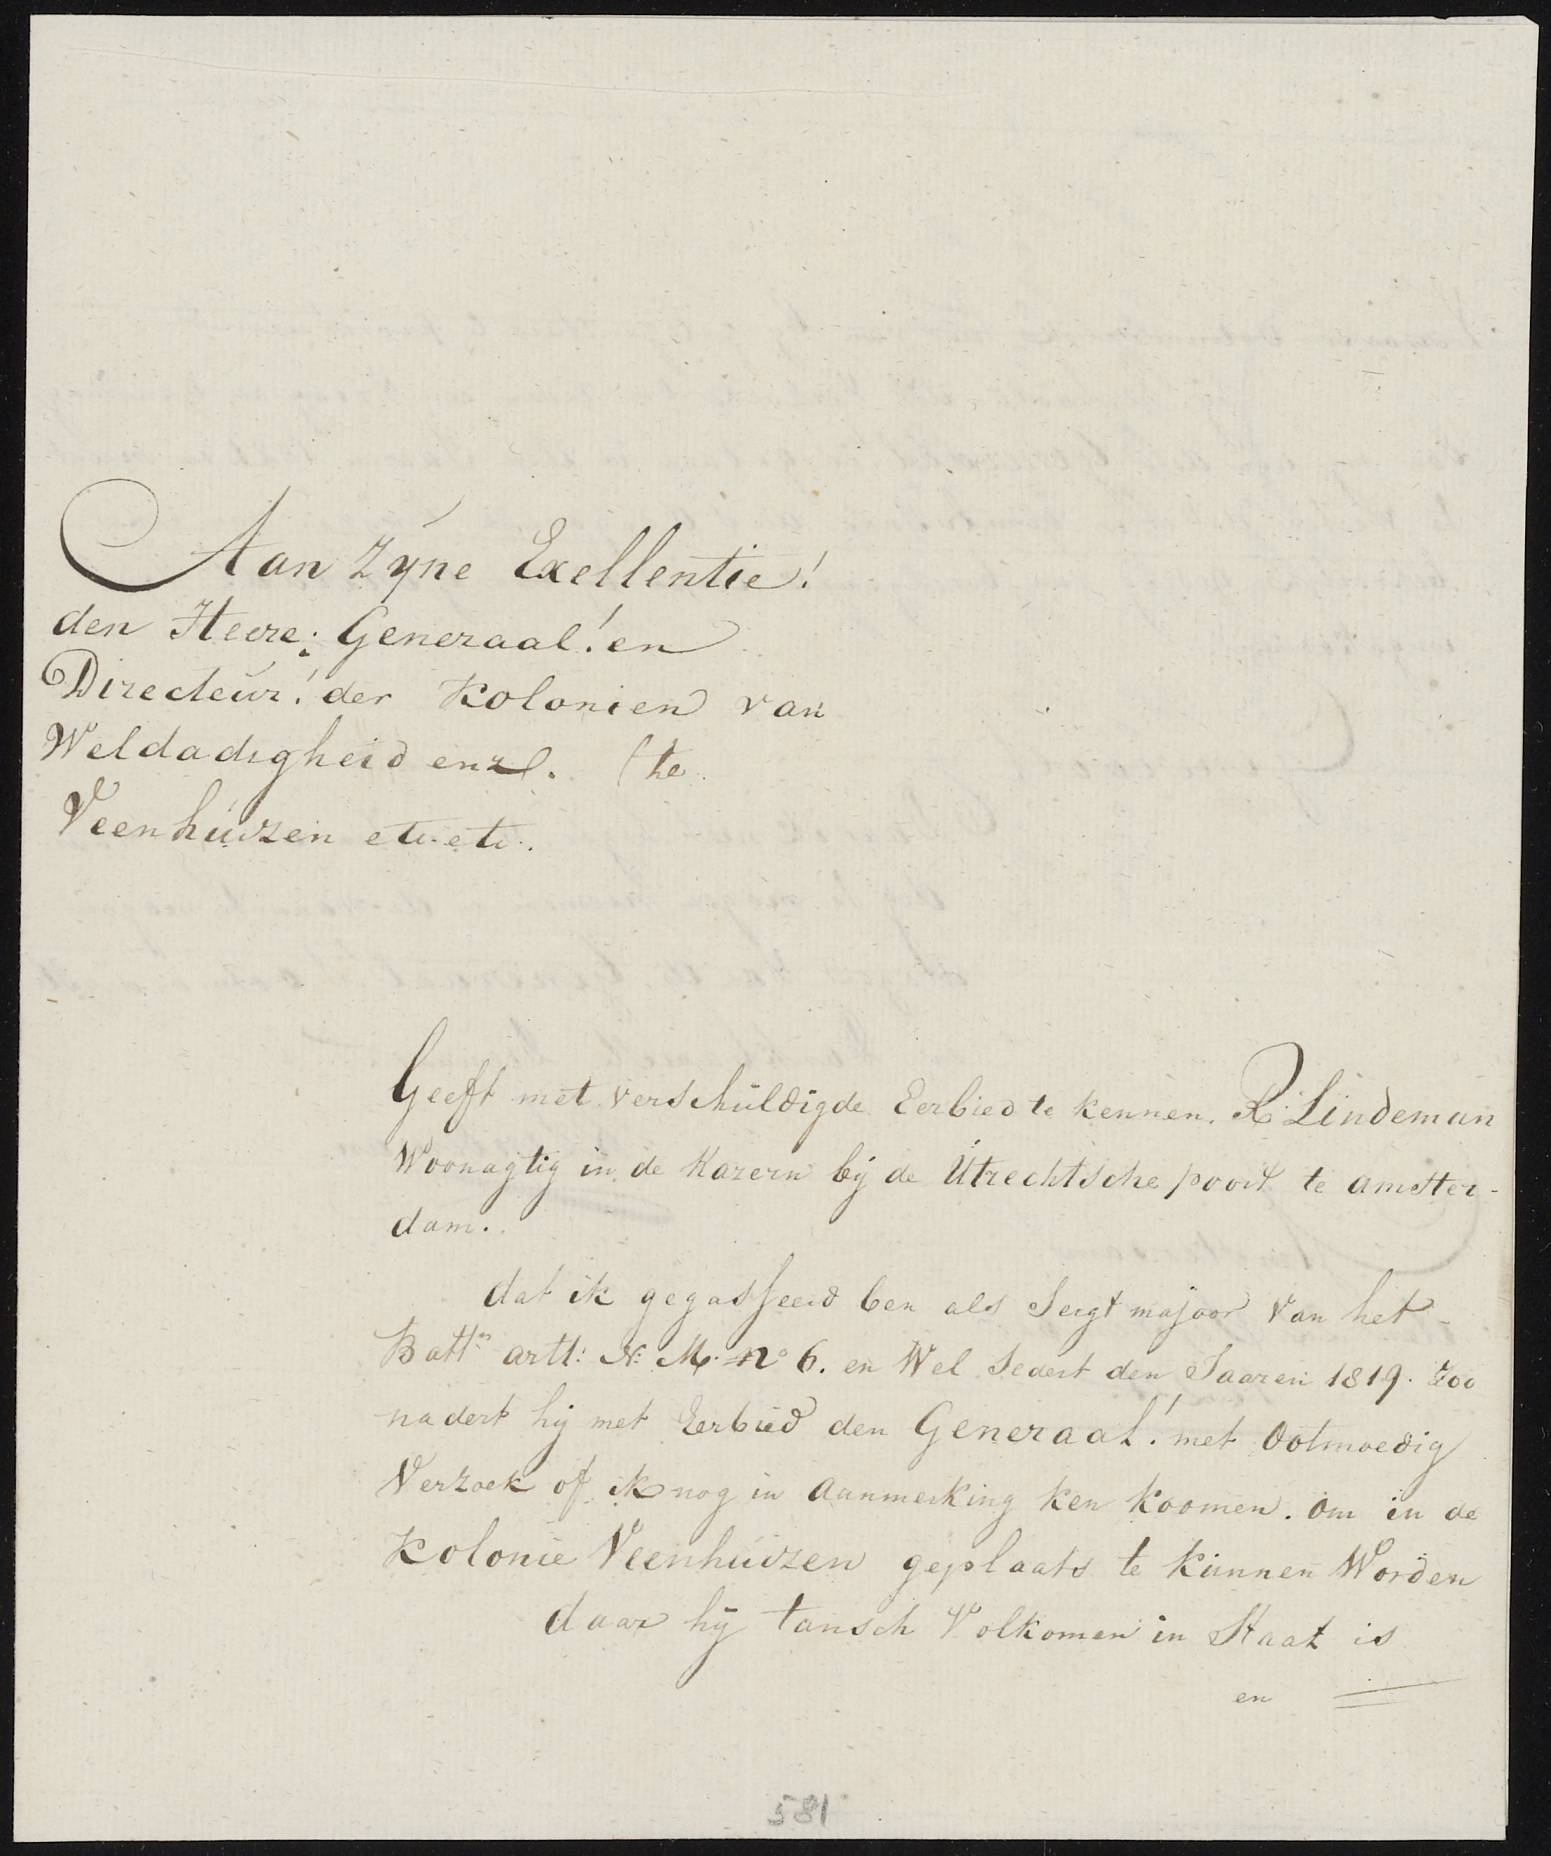 Aan Zÿne Exellentie!
den Heere; Generaal! en
Directeur! der Kolonien van
Weldadigheid enz. (te
Veenhuizen etc. etc.
Geeft met verschuldigde Eerbied te kennen. R: Lindeman
Woonagtig in de Kazern bÿ de Utrechtsche poort te amster-
dam.
dat ik gegasseerd ben als Sergt majoor van het
Battn artt: N: M. no 6. en Wel Sedert den Jaaren 1819. zoo
nadert hÿ met Eerbied den Generaal! met Ootmoedig
Verzoek of ik nog in aanmerking ken koomen. om in de
Kolonie Veenhuizen geplaats te kunnen Worden
daar hÿ tansch Volkomen in Staat is
en
581